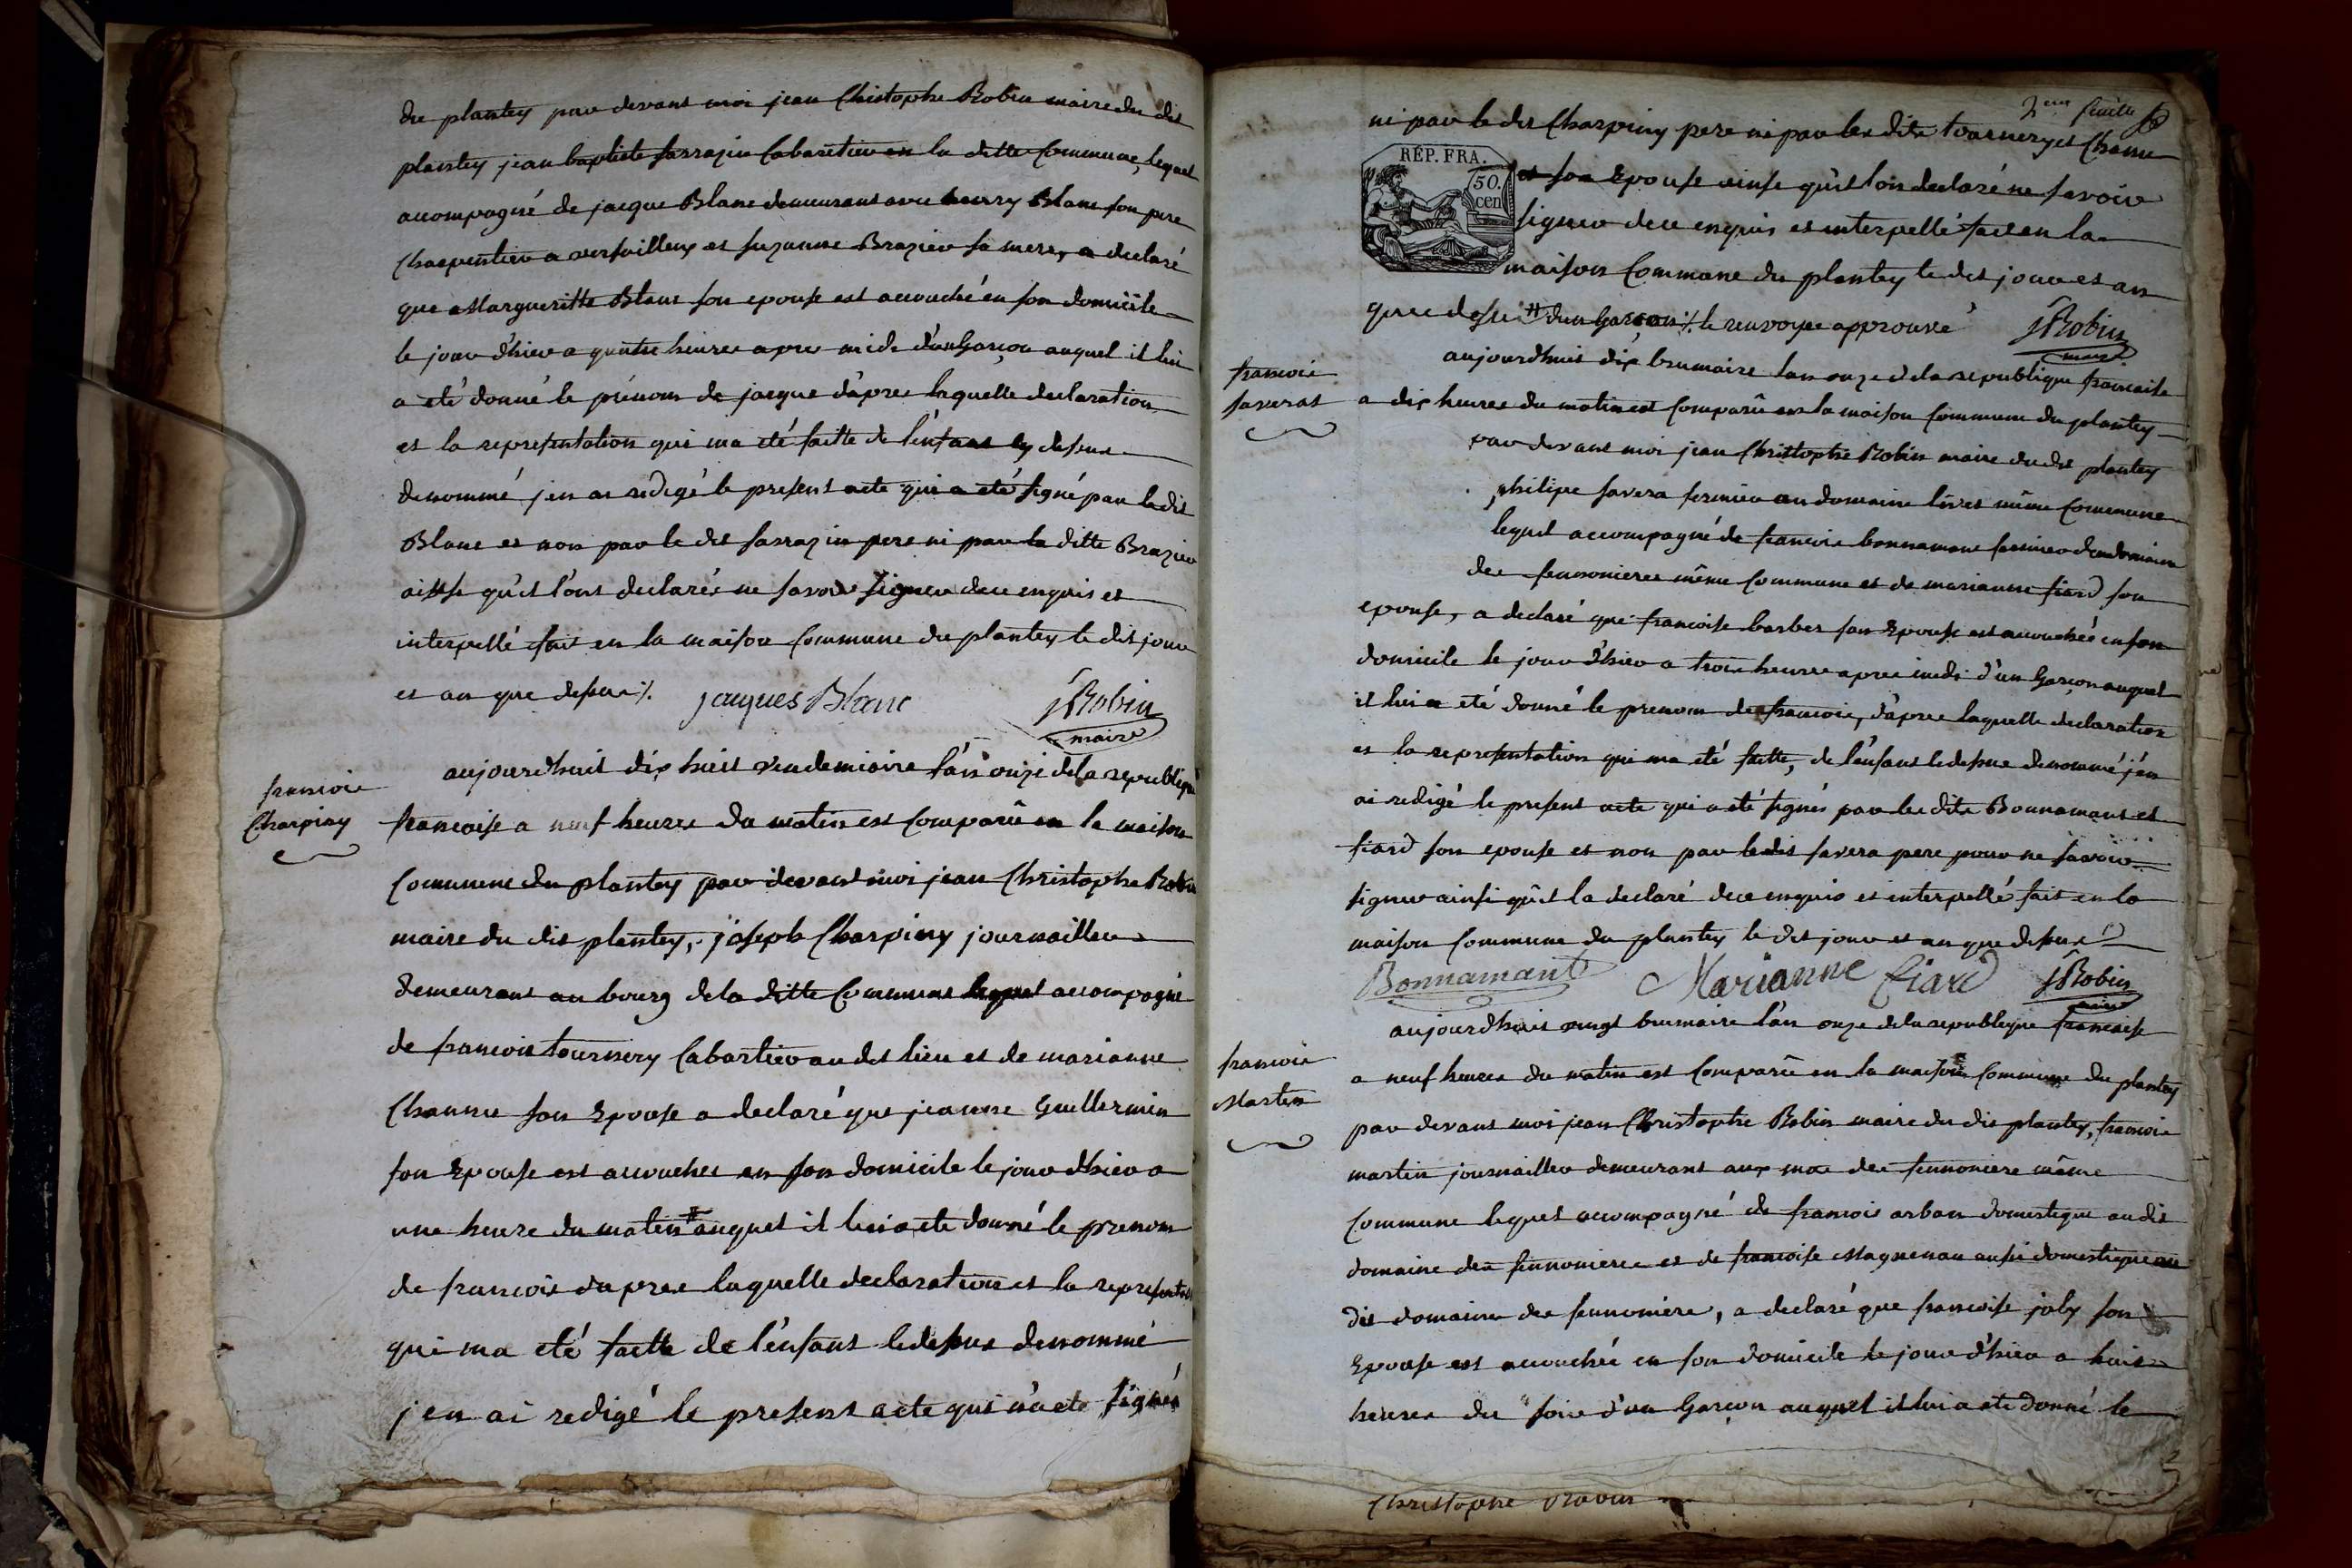 du plantey par devant moi jean Christophe Robin maire du dit
plantey jean baptiste sarrazin Cabaretier en la ditte Commune, lequel
accompagné de jacque Blanc demeurant avec henry Blanc son pere
Charpentier a versailleux et suzanne Brazier sa mere, a declaré
que Margueritte Blanc son epouse est accouchée en son domicile
le jour d'hier a quatre heures apres midi d'un Garçon auquel il lui
a eté donné le prénom de jacque d'apres laquelle declaration
et la representation qui ma eté faitte de l'enfant cy dessus
denommé j'en ai redigé le present acte qui a eté signé par le dit
Blanc et non par le dit sarrazin pere ni par la ditte Brazier
ainsse qu'il l'ont declarés ne savoir signer de ce enquis et
interpellé fait en la maison Commune du plantey le dit jour
et an que dessus ./. jacques Blanc JRobin
maire
francois
Charpiny
aujourdhuit dix huit vendemiaire l'an onze de la republique
francoise a neuf heures du matin est Comparû en la maison
Commune du plantey par devant moi jean Christophe Robin
maire du dit plantey, joseph Charpiny journaillier
demeurant au bourg de la ditte Commune lequel accompagné
de francois tournery Cabartier au dit lieu et de marianne
Channe son Epouse a declaré que jeanne Guillermin
son Epouse est accouchee en son domicile le jour d'hier a
une heure du matin # auquel il lui a ete donné le prenom
de francois dapres laquelle declaration et la representation
qui ma eté faitte de l'enfant le dessus denommé
j'en ai redigé le present acte qui n'a ete signés
2eme feuille
ni par le dit Charpiny pere ni par les dits tournery et Channe
RÉP. FRA.
50.
cen
et son Epouse ainse qu'il lon declaré ne savoir
signer de ce enquis et interpellé fait en la
maison Commune du plantey le dit jour et an
que dessus # d'un Garçon ./. le renvoye approuvé JRobin
maire
francois
saverat
aujourdhuit dix brumaire lan onze de la republique francaise
a dix heures du matin est Comparû en la maison Commune du plantey
par devant moi jean Christophe Robin maire du dit plantey
philipe savera fermier au domaine livet même Commune
lequel accompagné de francois bonnamant fermier du domaine
des fennonieres même Commune et de marianne fiard son
epouse, a declaré que francoise barbet son Epouse est accouchée en son
domicile le jour d'hier a trois heures apres midi d'un Garçon auquel
il lui a eté donné le prenom de francois, d'apres laquelle declaration
et la representation qui ma eté faitte, de l'enfant le dessus denommé j'en
ai redigé le present acte qui a eté signés par les dits Bonnamant et
fiard son epouse et non par le dit savera pere pour ne savoir
signer ainsi qu'il la declaré de ce enquis et interpellé fait en la
maison Commune du plantey le dit jour et an que dessus
Bonnamant Marianne fiard JRobin
maire
francois
Martin
aujourdhuit vingt brumaire l'an onze de la republique francaise
a neuf heures du matin est Comparû en la maison Commune du plantey
par devant moi jean Christophe Robin maire du dit plantey, francois
martin journaillier demeurant aux mas des fennoniere même
Commune lequel accompagné de francois arban domestique au dit
domaine des fennonieres et de francoise Magnenau aussi domestique au
dit domaine des fennoniere, a declaré que francoise joly son
Epouse est accouchée en son domicile le jour d'hier a huit
heures du soir d'un Garçon auquel il lui a ete donné le
Christophe Robin